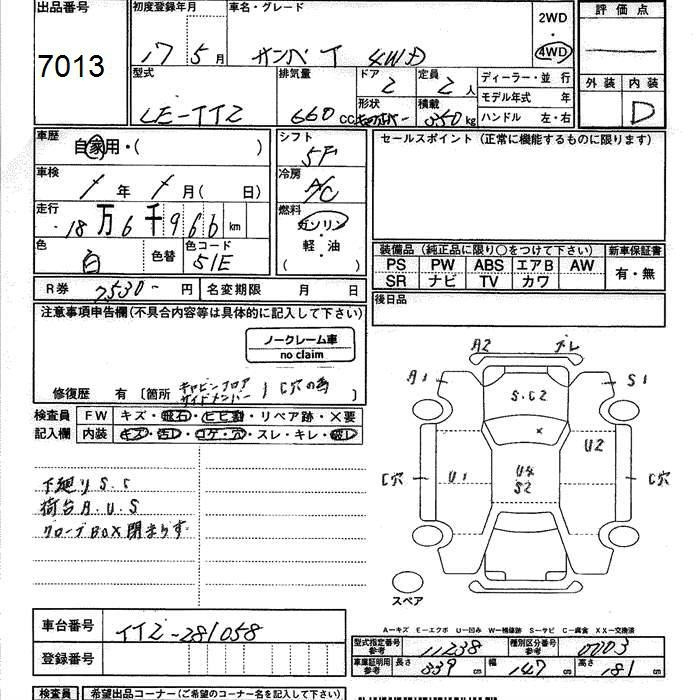 出品番号 初度登録年月 車名・グレード 2WD 評価点
7013 17 5月 サンバー 4WD ・ 4WD
型式 排気量 ドア 定員 ディーラー・並行 外装 内装
LE-TT2 660 cc 2 2人 モデル年式 年 D
形状 積載 350kg ハンドル 左・右
車歴 自家用・( ) シフト 5F セールスポイント (正常に機能するものに限ります)
車検 / 年 / 月( 日) 冷房 A/C
走行 18万6千966km 燃料 ガソリン・軽・油
( )
色 白 色替 色コード 51E 装備品 (純正品に限り○をつけて下さい) 新車保証書
PS PW ABS エアB AW 有・無
SR ナビ TV カワ
R券 7530- 円 名変期限 月 日 後日品
注意事項申告欄(不具合内容等は具体的に記入して下さい)
ノークレーム車
no claim
修復歴 有 〔箇所 キャビンフロア サイドメンバー C穴の為 〕
検査員 FW キズ・飛石・ヒビ割・リペア跡・×要
記入欄 内装 キズ・汚レ・コゲ・穴・スレ・キレ・破レ
下廻りS.C
荷台A.U.S
グローブBOX閉まらず
A2
A1
S1
S.C2
×
U2
C穴
U1
U4
S2
C穴
スペア
A-キズ E-エクボ U-凹み W-補修跡 S-サビ C-腐食 XX-交換済
車台番号 TT2-281058 型式指定番号 参考 11238 種別区分番号 参考 0003
登録番号 車庫証明用 参考 長さ 339 cm 幅 147 cm 高さ 181 cm
検査員 希望出品コーナー(ご希望のコーナー名を記入して下さい)